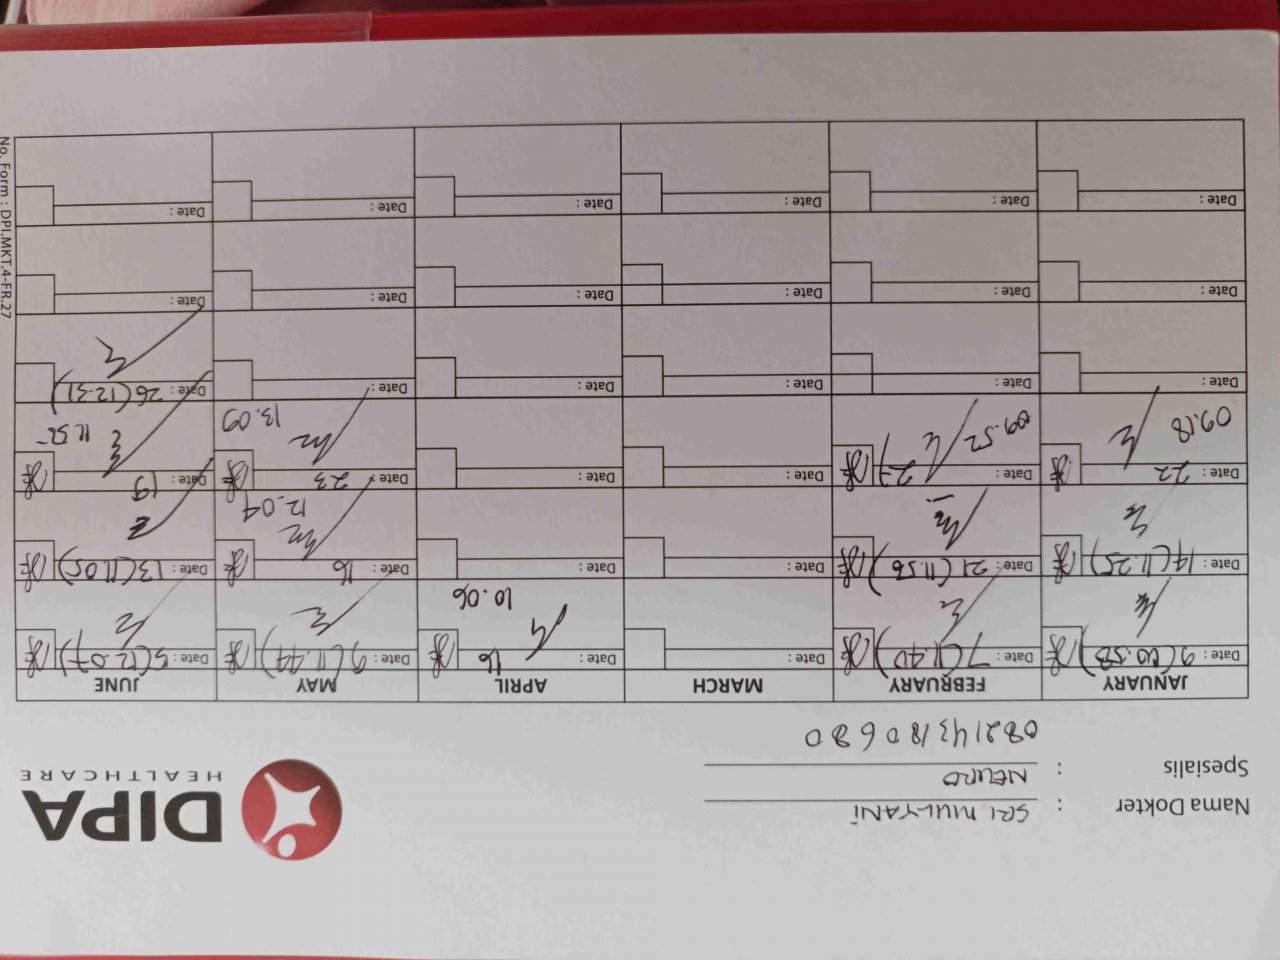 DIPA
HEALTHCARE
Nama Dokter : SRI MULYANI
Spesialis : NEURO
082143180680
JANUARY FEBRUARY MARCH APRIL MAY JUNE
Date : 9 (10.58) Date : 7 (11.40) Date : Date : 16 Date : 9 (11.44) Date : 5 (12.07)
10.06
Date : 14 (11.25) Date : 21 (11.56) Date : Date : Date : 16 Date : 13 (11.05)
12.04
Date : 22 Date : 27 Date : Date : Date : 23 Date : 19
09.18 09.52 13.09 11.55
Date : Date : Date : Date : Date : Date : 26 (12.31)
Date : Date : Date : Date : Date : Date :
Date : Date : Date : Date : Date : Date :
No. Form : DPI.MKT.4-FR.27